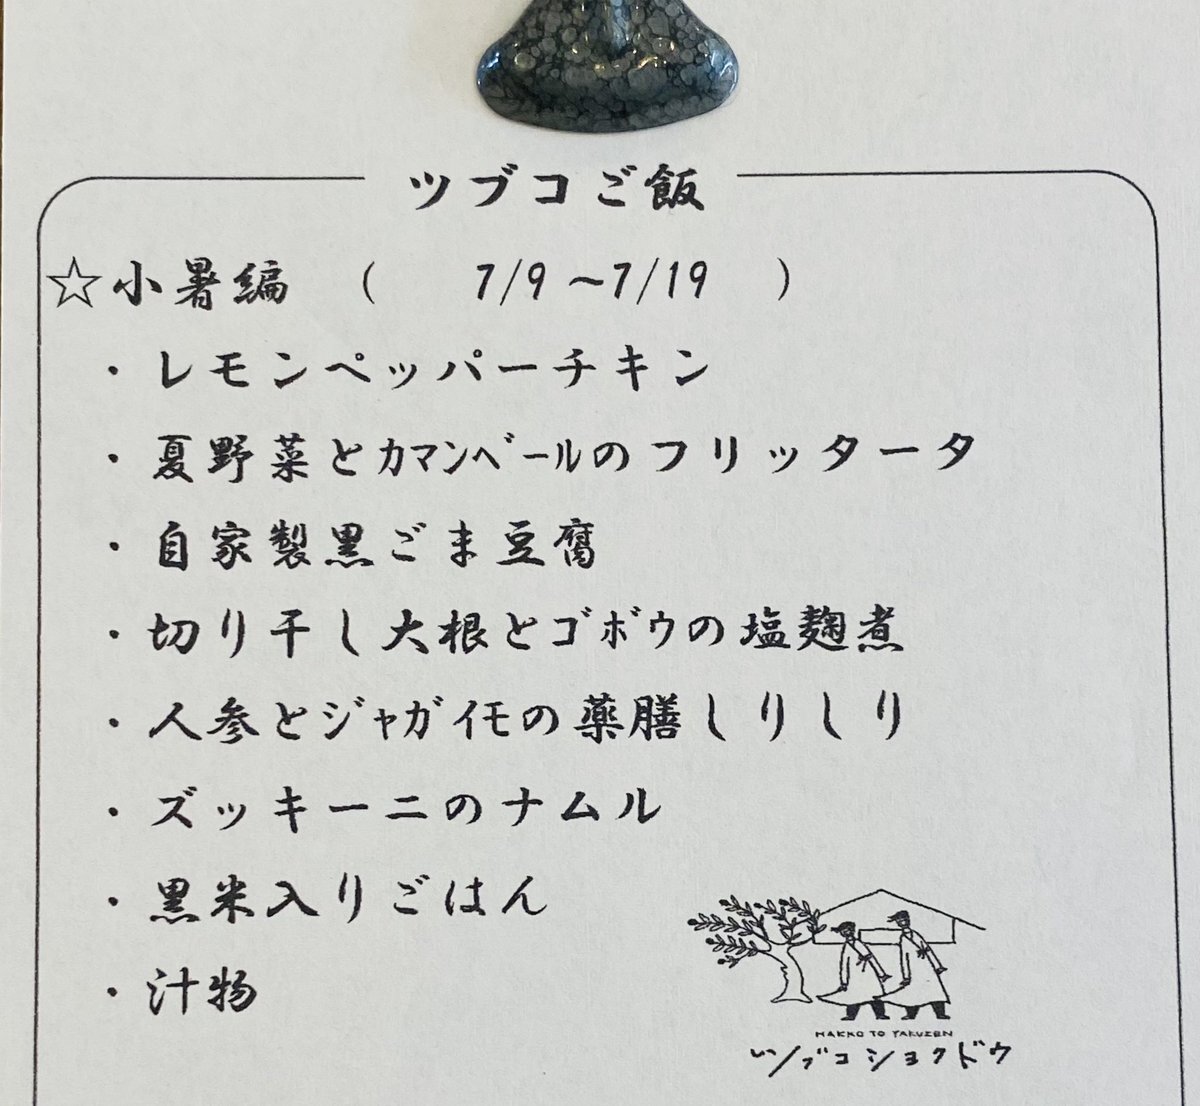 ツブコご飯
☆小暑編 ( 7/9~7/19 )
・レモンペッパーチキン
・夏野菜とｶﾏﾝﾍﾞｰﾙのフリッタータ
・自家製黒ごま豆腐
・切り干し大根とｺﾞﾎﾞｳの塩麹煮
・人参とｼﾞｬｶﾞｲﾓの薬膳しりしり
・ズッキーニのナムル
・黒米入りごはん
・汁物
HAKKO TO YAKUZEN
ツブコショクドウ